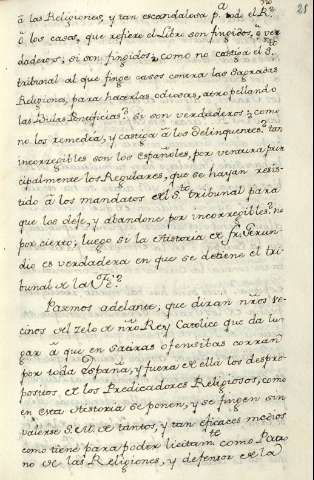 21
â las Religiones, y tan escandalosa pª. todo el Rno.
ô los casos, que refiere el Libro son fingidos, o ver
daderos; si son fingidos, como no castiga el Sto
tribunal al que finge casos contra las Sagradas
Religiones, para hacerlas odiosas, atropellando
las Bulas Pontificias? Si son verdaderos; como
no los remedia, y castiga â los delinquentes? tan
incorregibles son los Españoles, por ventura prin
cipalmente los Regulares, que se hayan resis-
tido â los mandatos del Sto tribunal para
que los deje, y abandone por incorregibles? no
por cierto; luego si la Historia de fr. Gerun-
dio es verdadera en que se detiene el tri-
bunal de la Fe?
Pasemos adelante; que diran nrõs ve-
cinos del zelo de nrõ Rey Catolico que da lu-
gar â que en Satiras ofensibas corran
por toda España, y fuera de ella los despro-
positos de los Predicadores Religiosos, como
en esta Historia se ponen, y se fingen sin
valerse S. M. de tantos, y tan eficaces medios
como tiene para poder licitamte. como Patro
no de las Religiones, y defensor de la